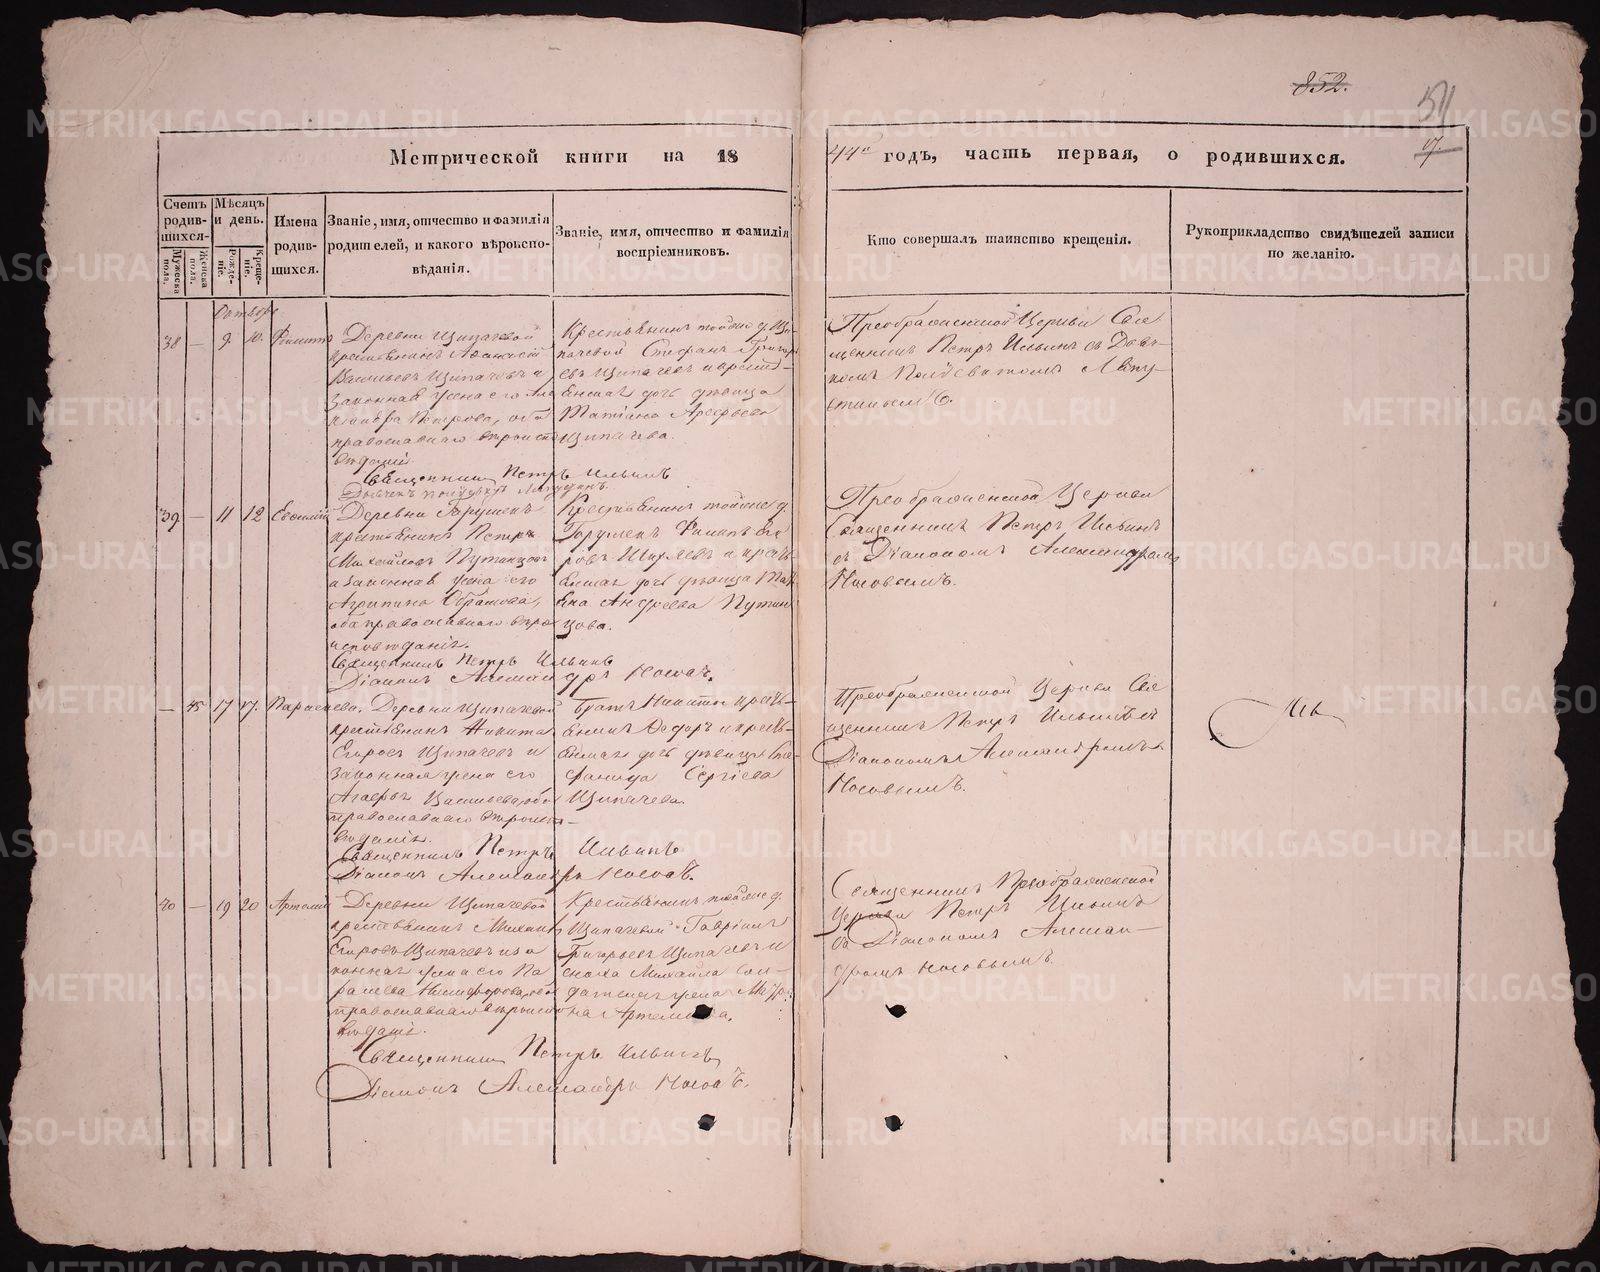 852.
51
Метрической книги на 18
44й годъ, часть первая, о родившихся.
Счетъ родив-шихся.
Мужеска пола.
Женска пола.
Мѣсяцъ и день.
Рожде-ніе.
Креще-ніе.
Имена родив-шихся.
Званіе, имя, отчество и фамилія родителей, и какого вѣроиспо-вѣданія.
Званіе, имя, отчество и фамилія воспріемниковъ.
Кто совершалъ таинство крещенія.
Рукоприкладство свидѣтелей записи по желанію.
Октябрь
38 — 9 10. Филиппъ
Деревни Щипачевой
крестьянинъ Афанасій
Васильевъ Щипачевъ и
законная жена его
Петрова, оба
православнаго вѣроиспо
вѣданія
Священникъ Петръ Ильинъ
Крестьянинъ тойже д. Щи-
пачевой Стефанъ Григорь
евъ Щипачевъ и крестья-
нская дочь дѣвица
Татіана Арефьева
Щипачева.
Преображенской Церкви Свя
щенникъ Петръ Ильинъ съ Дьяч-
комъ
39 — 11 12 Евсевій
Деревни
крестьянинъ Петръ
Михайловъ Путинцовъ
и законная жена его
Агрипина
оба православнаго вѣро
исповѣданія.
Священникъ Петръ Ильинъ
Діаконъ Александръ Носовъ.
Крестьянинъ тойже д.
Филипъ
и кресть
янская дочь дѣвица Тать
яна Андреева Путин
цова.
Преображенской Церкви
Священникъ Петръ Ильинъ
съ Діакономъ Александромъ
Носовымъ.
— 45 17 17. Параскева.
Деревни Щипачевой
крестьянинъ Никита
Егоровъ Щипачевъ и
законная жена его
Агафья Васильева, оба
православнаго вѣроиспо-
вѣданія.
Священникъ Петръ Ильинъ
Діаконъ Александръ Носовъ.
Братъ Никиты кресть-
янинъ Федоръ и кресть-
янская дочь дѣвица Сте-
фанида Сергіева
Щипачева.
Преображенской Церкви Свя
щенникъ Петръ Ильинъ съ
Діакономъ Александромъ
Носовымъ.
40 — 19 20 Артемій
Деревни Щипачевой
крестьянинъ Михаилъ
Егоровъ Щипачевъ и за
конная жена его Па
раскева Никифорова, оба
православнаго вѣроиспо
вѣданія.
Священникъ Петръ Ильинъ
Діаконъ Александръ Носовъ.
Крестьянинъ тойже д.
Щипачевой Гавріилъ
Григорьевъ Щипачевъ и
сноха Михаила сол-
датская жена Матре
на Артемьева.
Священникъ Преображенской
Церкви Петръ Ильинъ
съ Діакономъ Алексан-
дромъ Носовымъ.
METRIKI.GASO-URAL.RU